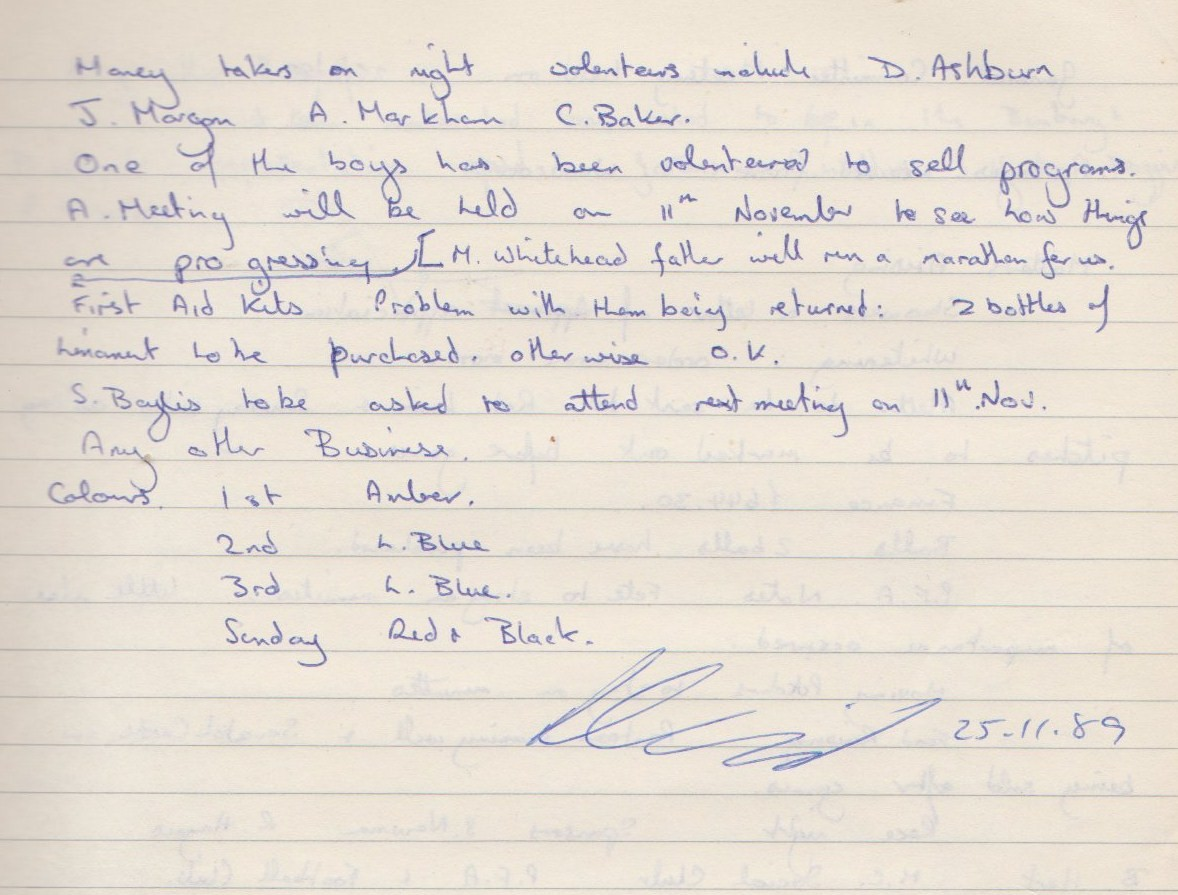 Money takers on night volenteurs include D. Ashburn
J. Morgan A. Markham C. Baker.
One of the boys has been volenteered to sell programs.
A. Meeting will be held on 11th November to see how things
are progressing [ M. Whitehead father will run a marathon for us.
First Aid Kits Problem with them being returned: 2 bottles of
liniament to be purchased. otherwise O.K.
S. Baylis to be asked to attend next meeting on 11th Nov.
Any other Business.
Colours. 1st Amber.
2nd L. Blue
3rd L. Blue.
Sunday Red & Black.
25-11-89